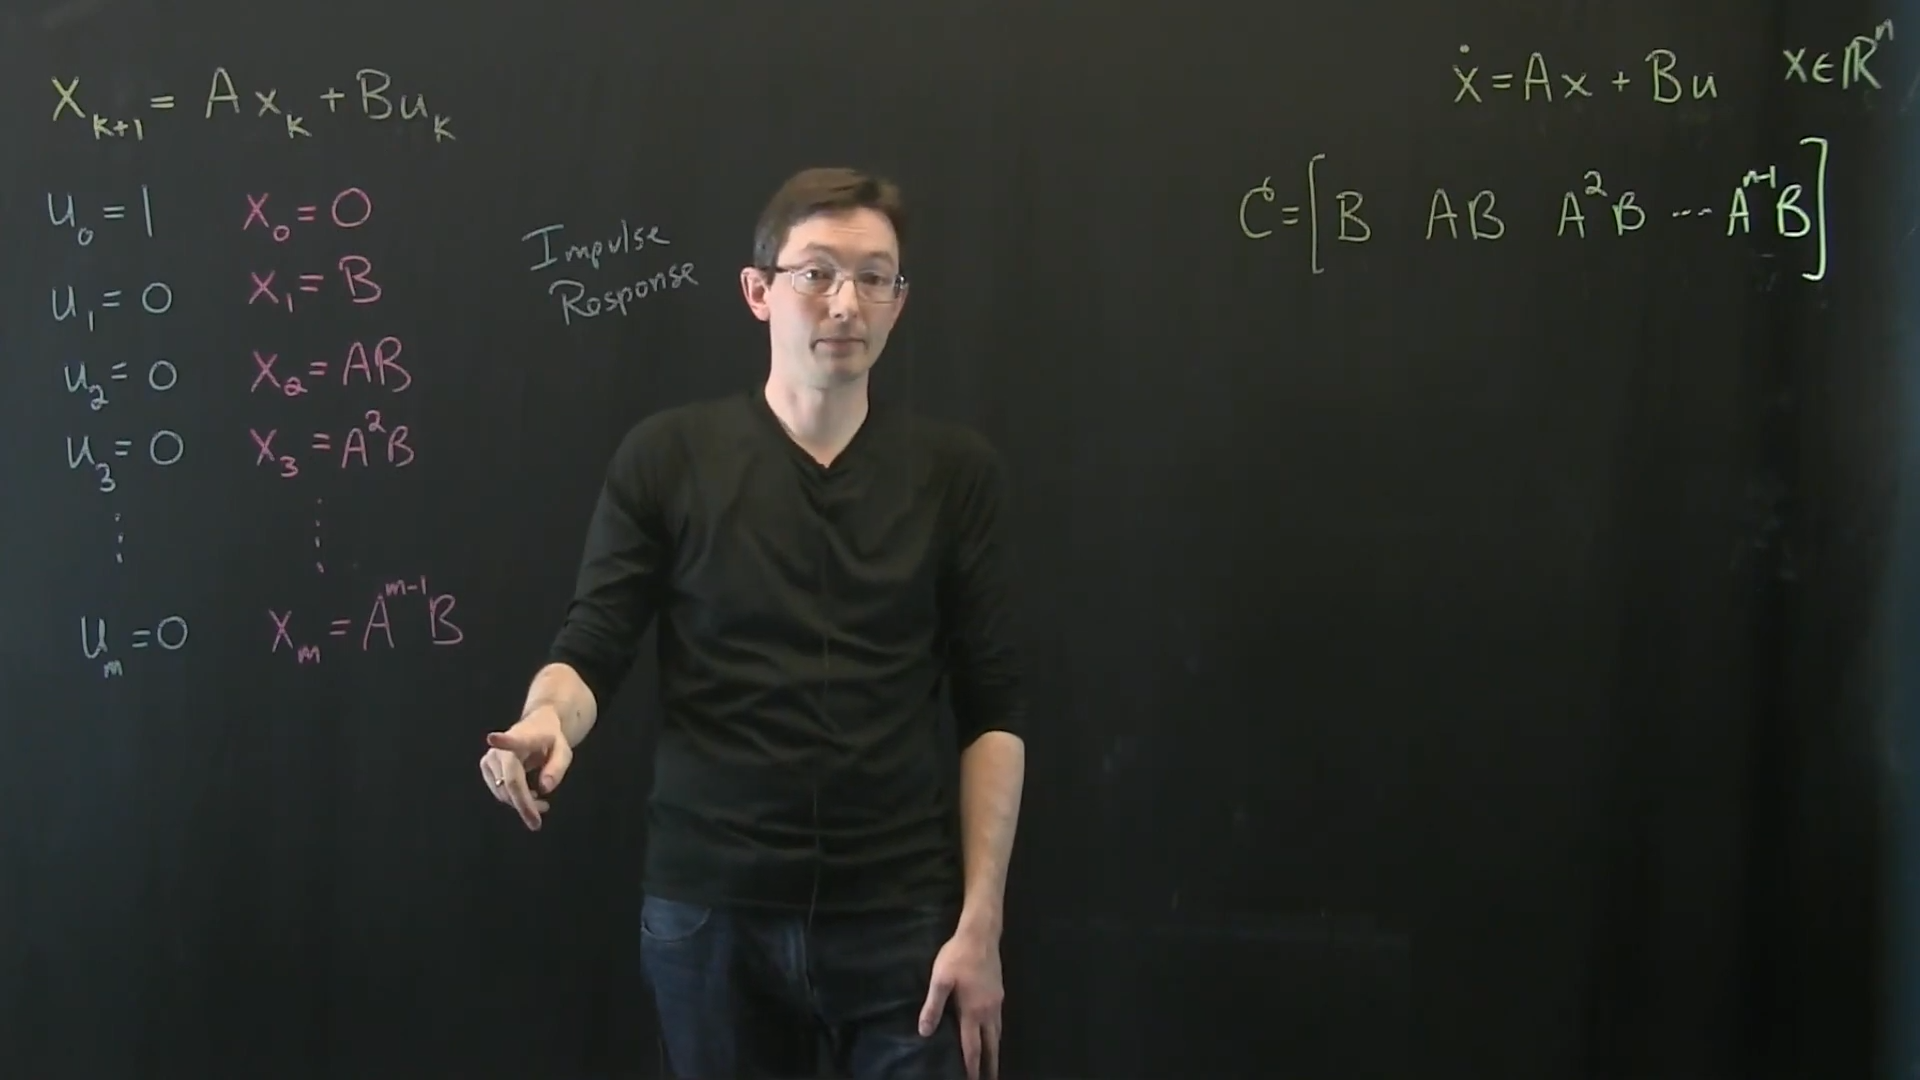 X_{k+1} = A x_k + B u_k
u_0 = 1 x_0 = 0
u_1 = 0 x_1 = B
u_2 = 0 x_2 = AB
u_3 = 0 x_3 = A^2 B
⋮ ⋮
u_m = 0 x_m = A^{m-1} B
Impulse
Response
ẋ = Ax + Bu x ∈ ℝ^n
𝒞 = [B AB A^2B ... A^{n-1}B]